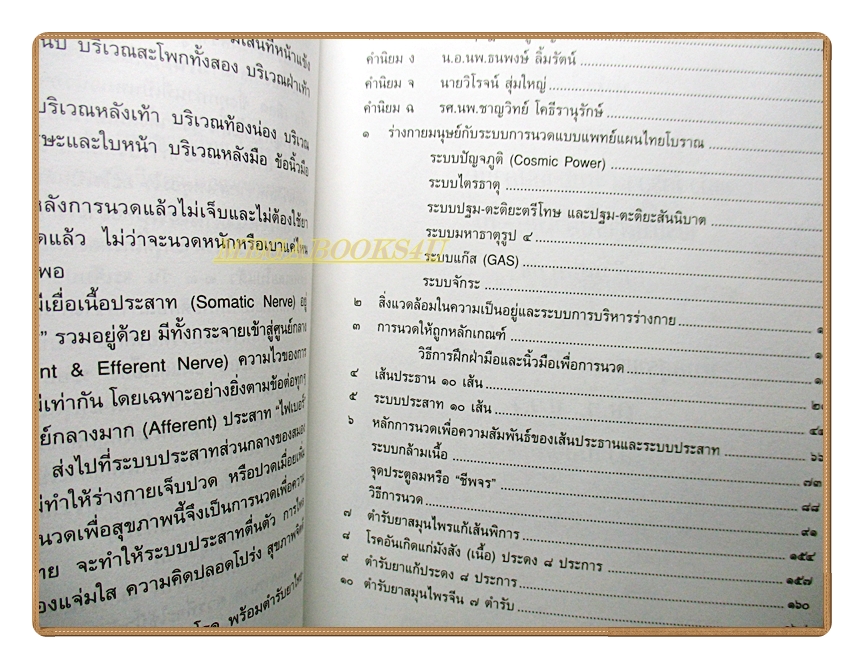 มีเส้นที่หน้าแข้ง
บริเวณสะโพกทั้งสอง บริเวณฝ่าเท้า
บริเวณหลังเท้า บริเวณท้องน่อง บริเวณ
และใบหน้า บริเวณหลังมือ ข้อนิ้วมือ
หลังการนวดแล้วไม่เจ็บและไม่ต้องใช้ยา
ดแล้ว ไม่ว่าจะนวดหนักหรือเบาแค่ไหน
พอ
มีเยื่อเนื้อประสาท (Somatic Nerve) อยู่
” รวมอยู่ด้วย มีทั้งกระจายเข้าสู่ศูนย์กลาง
nt & Efferent Nerve) ความไวของการ
ม่เท่ากัน โดยเฉพาะอย่างยิ่งตามข้อต่อทุกๆ
ย์กลางมาก (Afferent) ประสาท “ไฟเบอร์
ส่งไปที่ระบบประสาทส่วนกลางของสมอง
ม่ทำให้ร่างกายเจ็บปวด หรือปวดเมื่อยเพิ่ม
นวดเพื่อสุขภาพนี้จึงเป็นการนวดเพื่อความ
าย จะทำให้ระบบประสาทตื่นตัว การไหล
องแจ่มใส ความคิดปลอดโปร่ง สุขภาพจิตดี
โรค พร้อมตำรับยาไทย
คำนิยม ง น.อ.นพ.ธนพงษ์ ลิ้มรัตน์
คำนิยม จ นายวิโรจน์ สุ่มใหญ่
คำนิยม ฉ รศ.นพ.ชาญวิทย์ โคธีรานุรักษ์
๑ ร่างกายมนุษย์กับระบบการนวดแบบแพทย์แผนไทยโบราณ
ระบบปัญจภูติ (Cosmic Power)
ระบบไตรธาตุ
ระบบปฐม-ตะติยะตรีโทษ และปฐม-ตะติยะสันนิบาต
ระบบมหาธาตุรูป ๔
MEGABOOKS4U
ระบบแก๊ส (GAS)
ระบบจักระ
๒ สิ่งแวดล้อมในความเป็นอยู่และระบบการบริหารร่างกาย
๓ การนวดให้ถูกหลักเกณฑ์
วิธีการฝึกฝ่ามือและนิ้วมือเพื่อการนวด
๔ เส้นประธาน ๑๐ เส้น
๕ ระบบประสาท ๑๐ เส้น
๖ หลักการนวดเพื่อความสัมพันธ์ของเส้นประธานและระบบประสาท ๖๖
ระบบกล้ามเนื้อ ๗๓
จุดประตูลมหรือ “ชีพจร” ๘๘
วิธีการนวด ๙๑
๗ ตำรับยาสมุนไพรแก้เส้นพิการ ๑๕๔
๘ โรคอันเกิดแก่มังสัง (เนื้อ) ประดง ๘ ประการ ๑๕๗
๙ ตำรับยาแก้ประดง ๘ ประการ ๑๖๐
๑๐ ตำรับยาสมุนไพรจีน ๗ ตำรับ